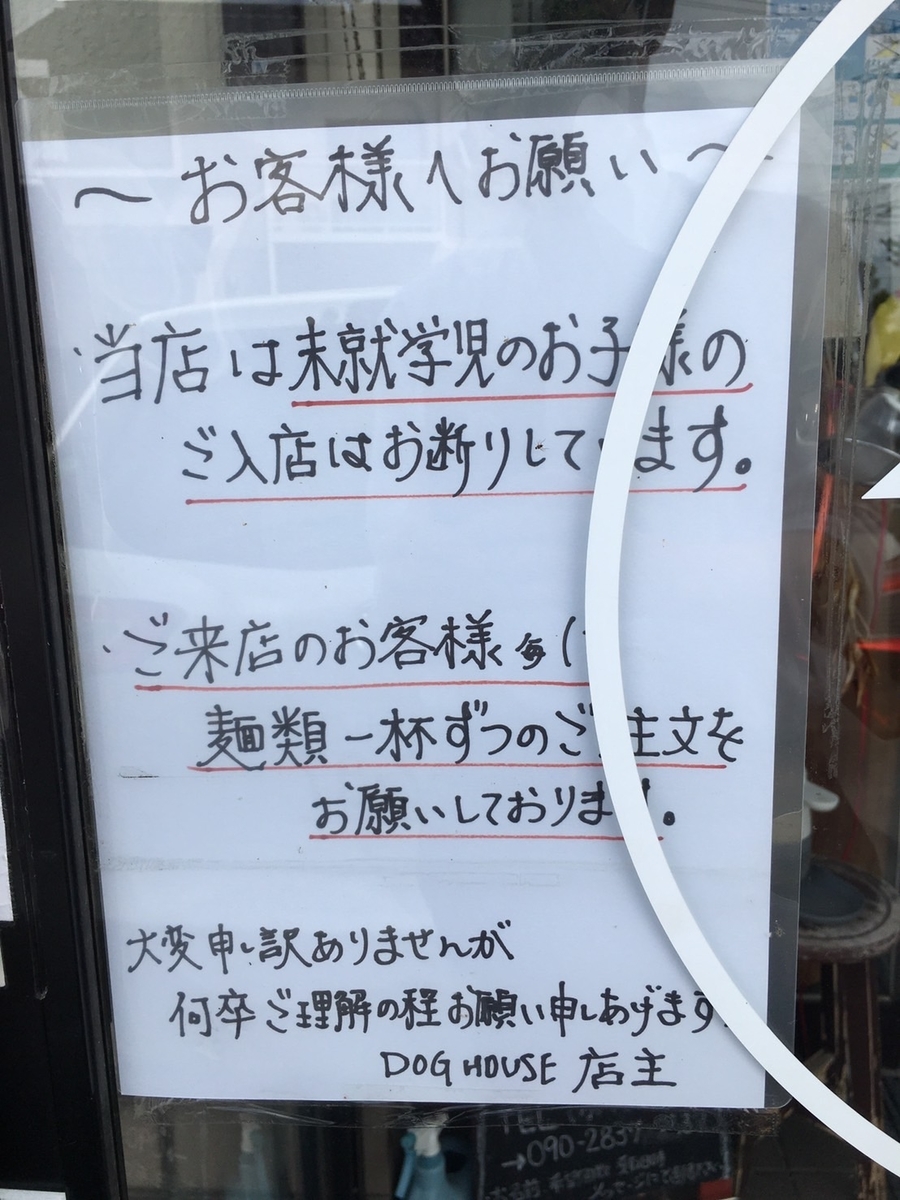 ～お客様へお願い～
・当店は未就学児のお子様の
ご入店はお断りしています。
・ご来店のお客様毎に
麺類一杯ずつのご注文を
お願いしております。
大変申し訳ありませんが
何卒ご理解の程お願い申しあげます。
DOG HOUSE 店主
TEL
→090-2839